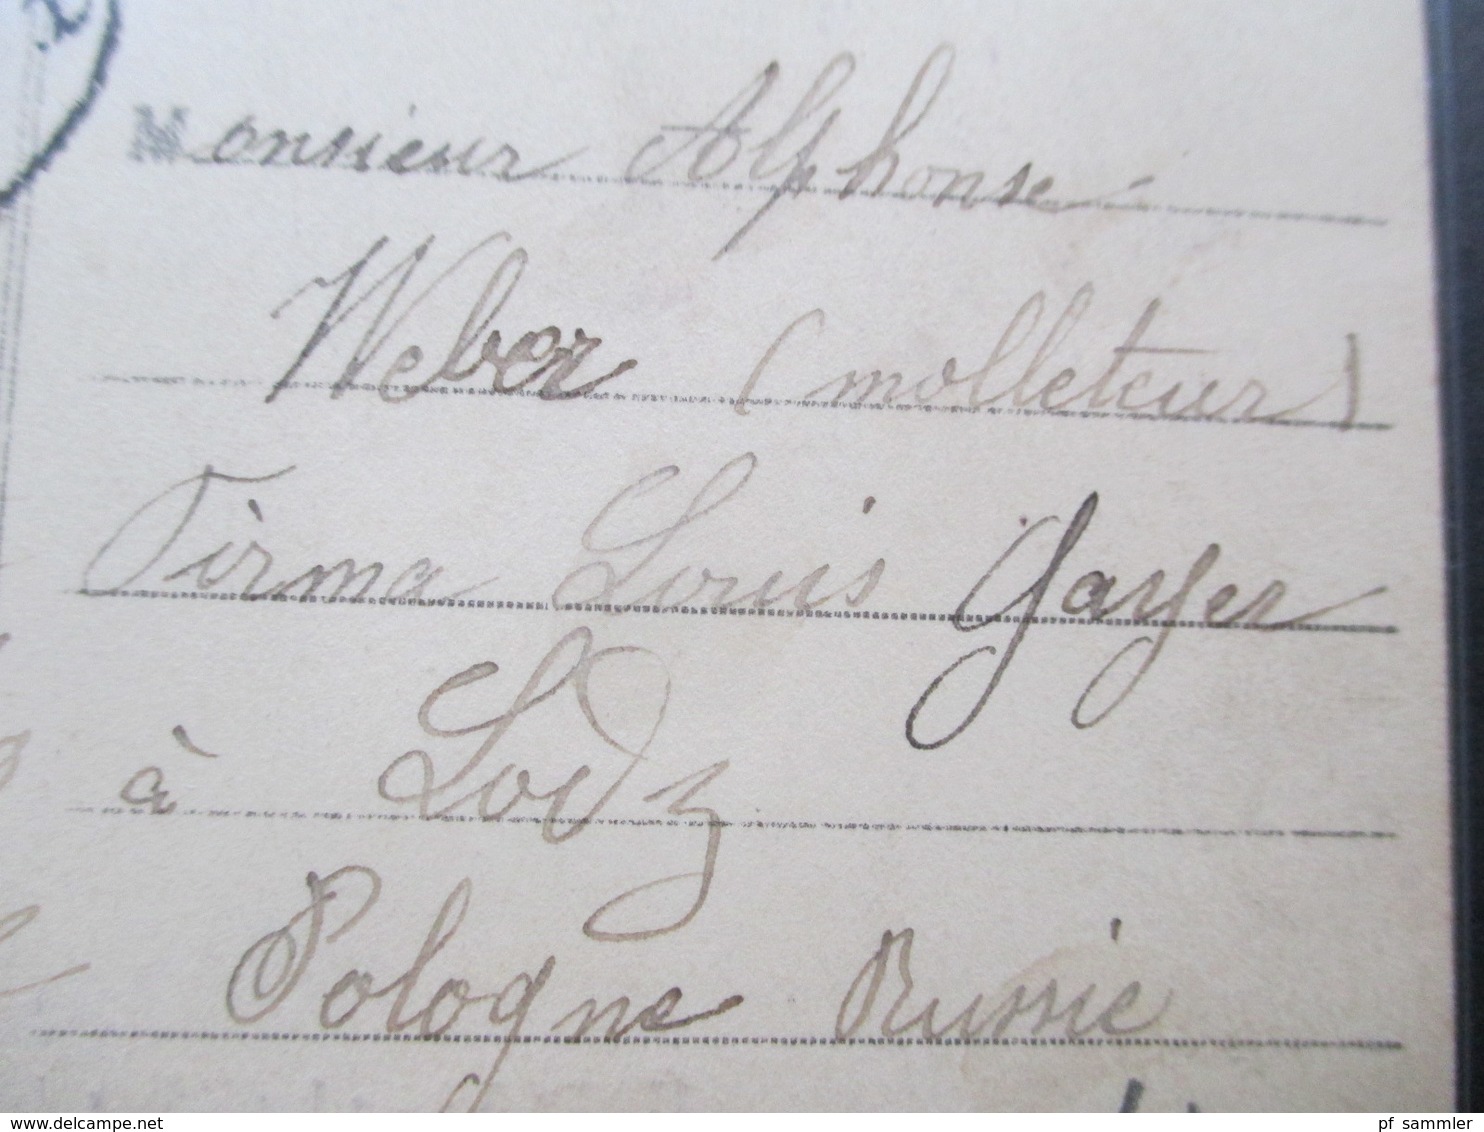 Monsieur Alphonse
Weber (molleteur)
Firma Louis Gayer
à Lodz
Pologne Russie
delcampe.net
pf_sammler